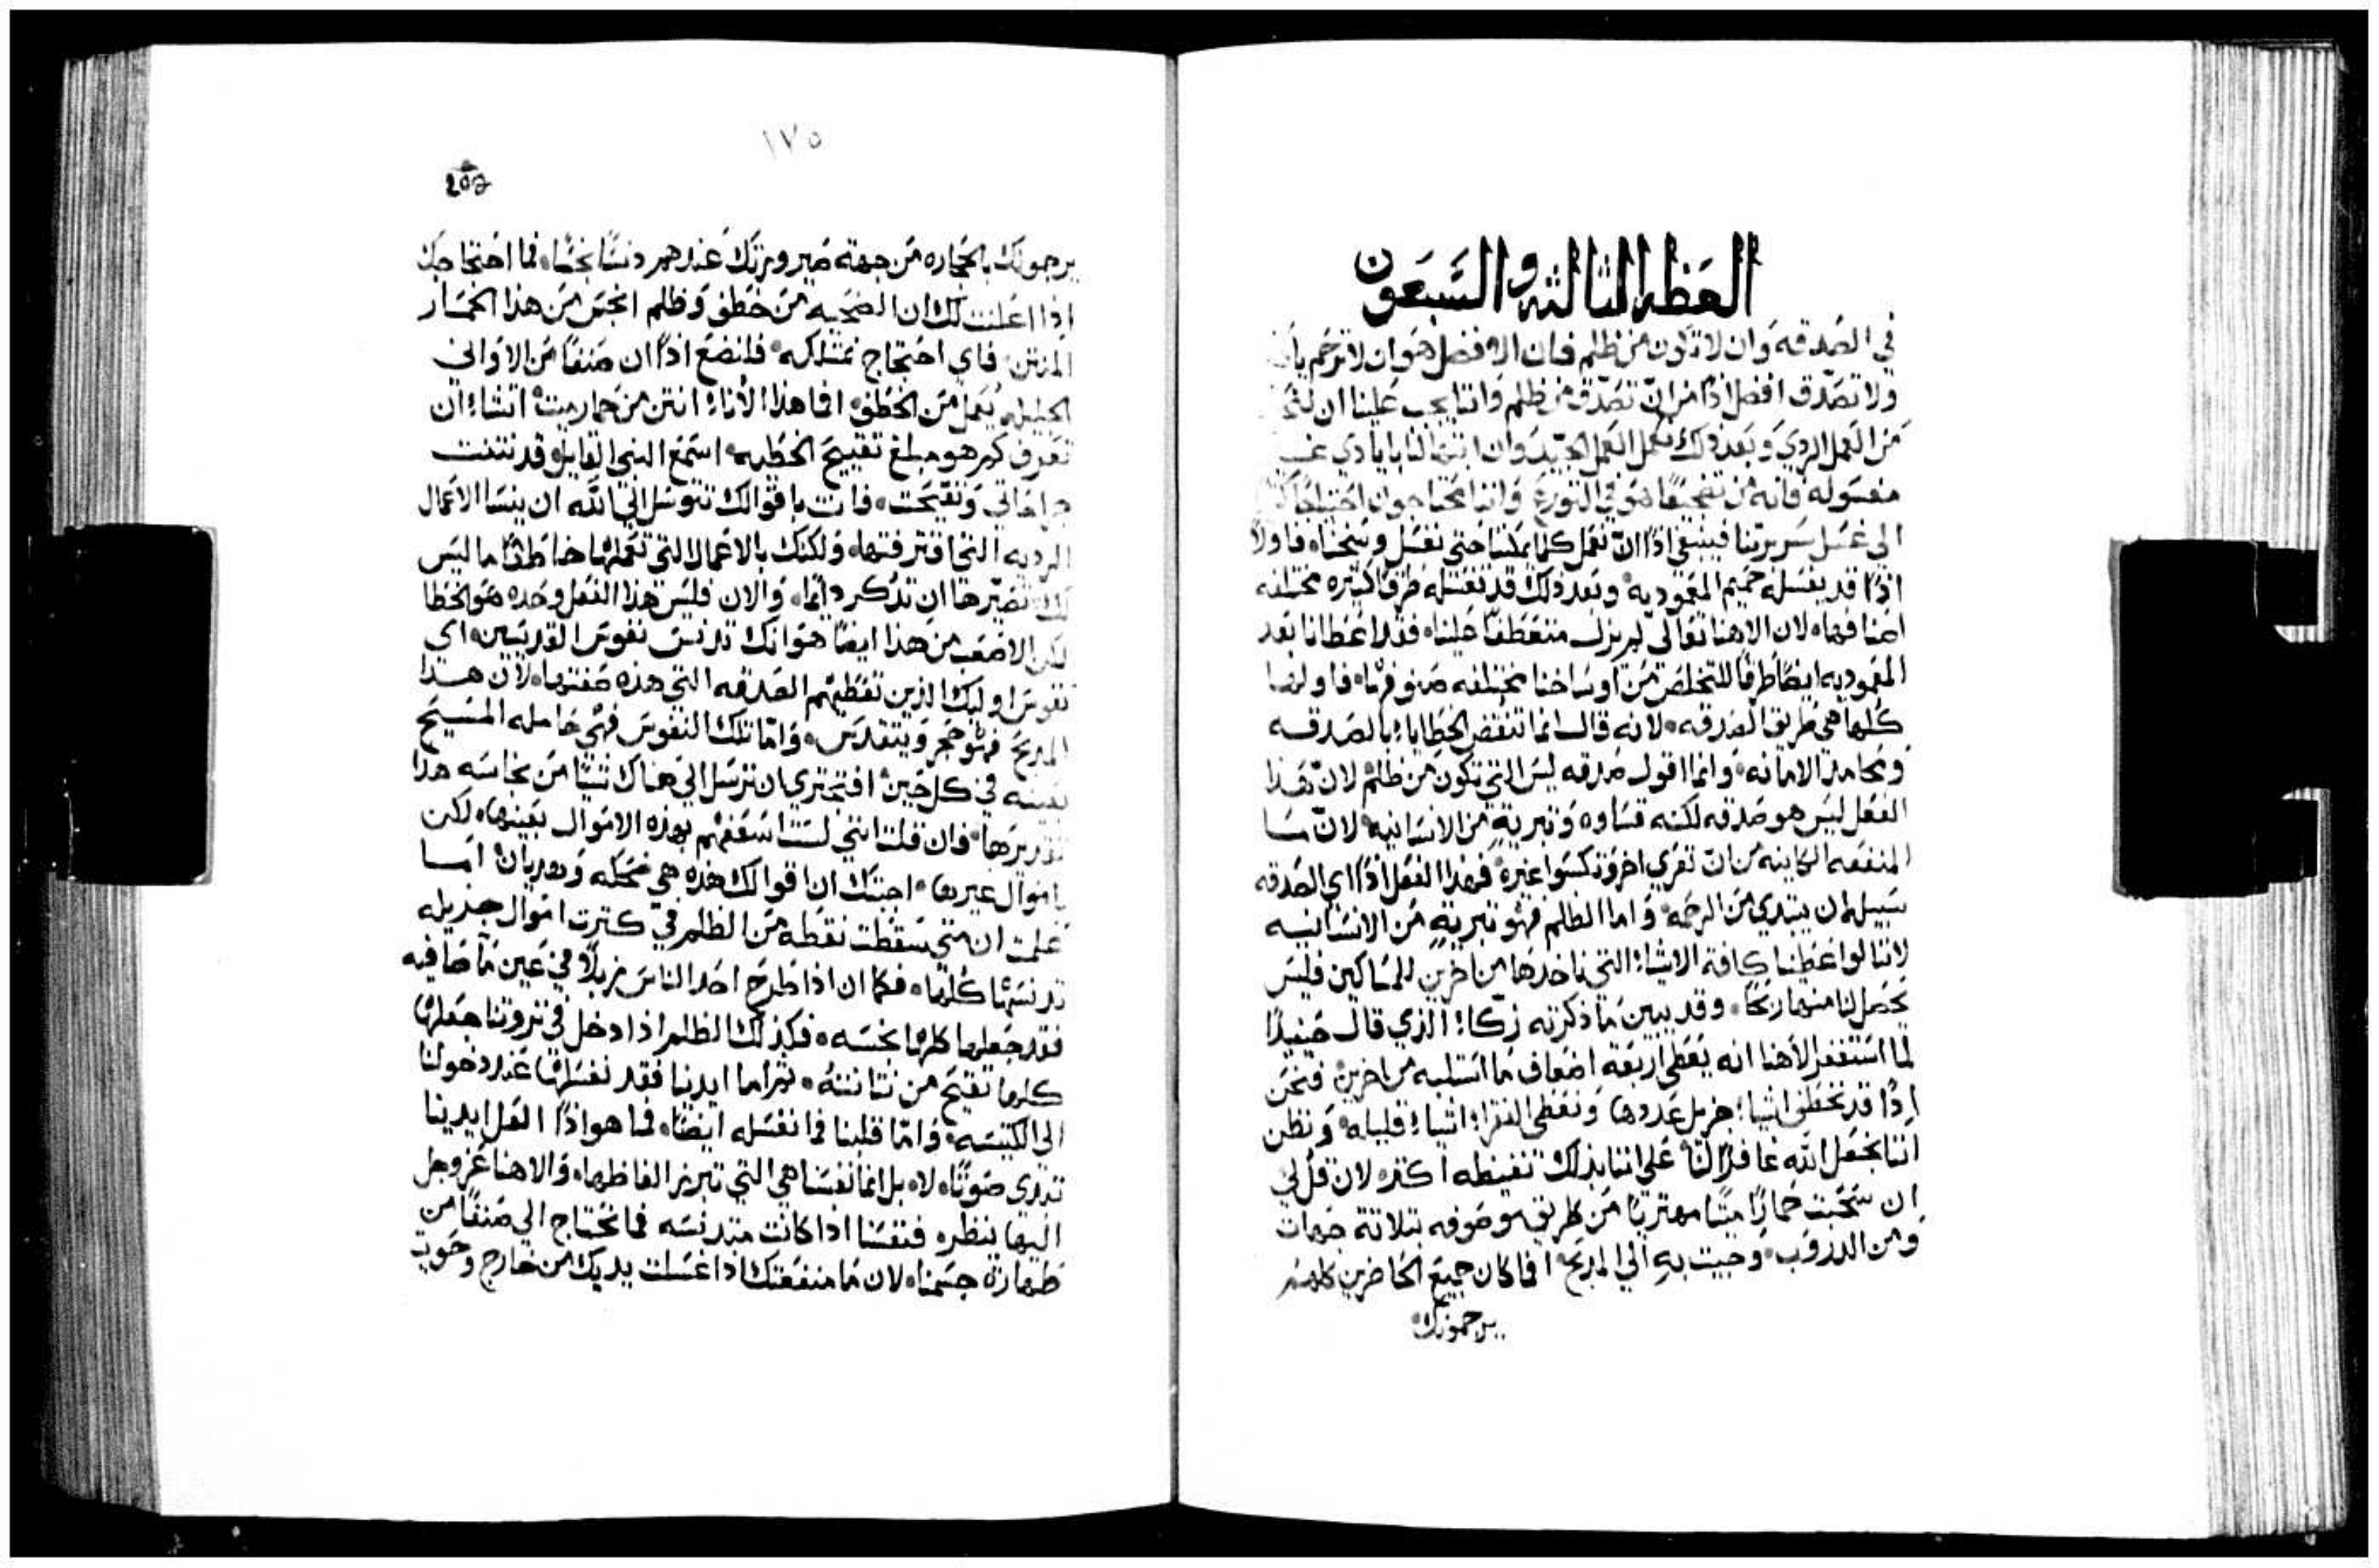 العظه الثالثه والسبعون
في الصدقه وان لا تكون من ظلم فان الافضل هو ان لا ترحم
ولا تصدق افضل اذًا من ان تصدق من ظلم واننا يجب علينا ان
من العمل الردي وبعد ذلك نعمل العمل الجيد وان ابتهالنا بايادي غير
مغسوله فانه من في التورع واننا محتاجون احتياجًا
الى غسل سريرتنا فينبغي اذًا ان نعمل كلما يمكننا حتى نغسل وسخناه فاولًا
اذًا قد يغسله حميم المعموديه وبعد ذلك قد تغسله طرق كثيره مختلفه
اصنافهاه لان الاهنا تعالى لم يزل متعطفًا علينا فقد اعطانا بعد
المعموديه ايضًا طرقًا للتخلص من اوساخنا مختلفه صنوفهاه فاولها
كلها هي طريق الصدقه لانه قال انما تنقض الخطايا بالصدقه
ومحامد الامانه وانما اقول صدقه ليس التي تكون من ظلم لان هذا
الفعل ليس هو صدقه لكنه قساوه وتبرية من الانسانيه لان ما
المنفعه الكاينه من ان تعري اخر وتكسوا غيره فهذا الفعل اذًا اي الصدقه
سبيله ان يبتدي من الرحمه واما الظلم فهو تبرية من الانسانيه
لاننا لو اعطينا كافة الاشياء التي ناخدها من اخرين للمساكين فليس
يحصل لنا منهما ربحًا وقد يبين ما ذكرته زكاء الذي قال حينيذًا
لما استغفر لاهنا انه يعطي اربعة اضعاف ما استلبه من اخرين فنحن
اذًا قد نخطف اشياء جزيل عددها ونعطي الفقراء اشياء قليله ونظن
اننا نجعل الله غافرًا لنا على اننا بذلك نغيظه اكثره لان قل لي
ان سحبت حمارًا ميتًا مهتريًا من طريق موصوفه بثلاثة جهات
ومن الدروب وجيت به الي المذبح افما كان جميع الحاضرين كلهم
يرجمونك
١٧٥
يرجمونك بالحجاره من جهة صيرورتك عندهم دنسًا نجسًا فما احتجاجك
اذا اعلنت لك ان الضحيه من خطف وظلم انجس من هذا الحمار
المنتن فاي احتجاج تمتلكه فلنضع اذًا ان صنفًا من الاواني
الجليله يعمل من الخطف افما هذا الاناء انتن من حمار ميت اتشاء ان
تعرف كم هو مبلغ تقييح الخطيه استمع النبي القايل قد نتنت
جراحاتي وتقيحت فانت باقوالك تتوسل الي الله ان ينسا الاعمال
الرديه التي اقترفتها ولكنك بالاعمال التي تعملها خاطفًا ما ليس
لك تصيرها ان تذكر دايمًا والان فليس هذا الفعل وحده هو الخطا
لكن الاصعب من هذا ايضًا هو انك تدنس نفوس القديسين اي
نفوس اوليك الذين تعطيهم الصدقه التي هذه صفتها لان هذا
المذبح فهو حجر ويتقدس واما تلك النفوس فهي حامله المسيح
بعينه في كل حين افتجتري ان ترسل الي هناك شيًا من نجاسه هذا
تقديرها فان قلت انني لستًا اسعفهم بهذه الاموال بعينها لكن
باموال غيرها اجبتك ان اقوالك هذه هي ضحكه وهديان اما
علمت ان متى سقطت نقطه من الظلم في كثرت اموال جزيله
تدنسها كلها فكما ان اذا طرح احد الناس زبلًا في عين ماء صافيه
فقد جعلها كلها نجسه فكذلك الظلم اذا دخل في ثروتنا جعلها
كلها تقيح من نتانته ثم اما ايدينا فقد نغسلها عند دخولنا
الى الكنيسه واما قلبنا فما نغسله ايضًا فما هو اذًا العل ايدينا
تبدي صوتًا لاه بل انما نفسنا هي التي تبرز الفاظها والاهنا عز وجل
اليها ينظره فنفسنا اذا كانت متدنسه فما نحتاج الي صنفًا من
طهارة جسمناه لان ما منفعتك اذا غسلت يديك من خارج وحويت